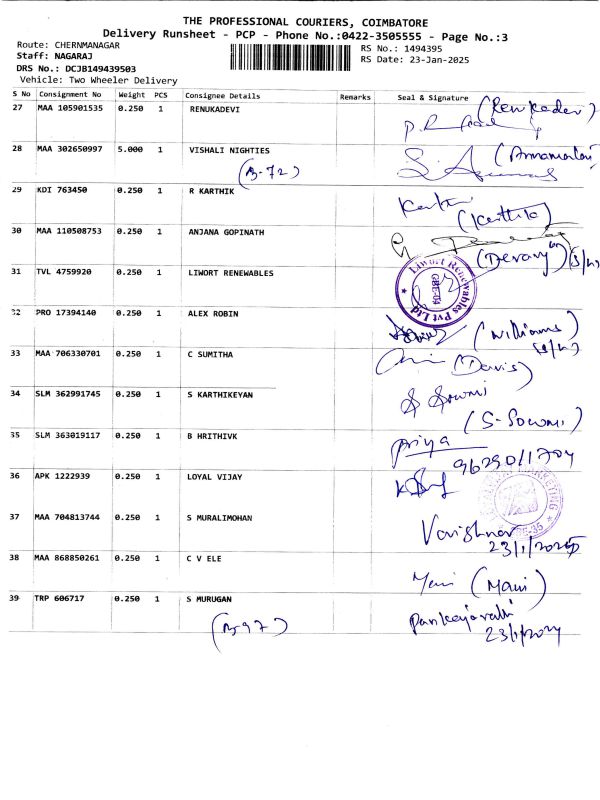 THE PROFESSIONAL COURIERS, COIMBATORE
Delivery Runsheet - PCP - Phone No.:0422-3505555 - Page No.:3
Route: CHERNMANAGAR
RS No.: 1494395
Staff: NAGARAJ
RS Date: 23-Jan-2025
DRS No.: DCJB149439503
Vehicle: Two Wheeler Delivery
S No Consignment No Weight PCS Consignee Details Remarks Seal & Signature
27 MAA 105901535 0.250 1 RENUKADEVI (Renukadevi)
28 MAA 302650997 5.000 1 VISHALI NIGHTIES (Annamalai)
(B-72)
29 KDI 763450 0.250 1 R KARTHIK
(Karthik)
30 MAA 110508753 0.250 1 ANJANA GOPINATH
31 TVL 4759920 0.250 1 LIWORT RENEWABLES Liwort Renewables Pvt Ltd
32 PRO 17394140 0.250 1 ALEX ROBIN
(Williams)
33 MAA 706330701 0.250 1 C SUMITHA (Davis)
34 SLM 362991745 0.250 1 S KARTHIKEYAN S Sowmi
(S-Sowmi)
35 SLM 363019117 0.250 1 B HRITHIVK Priya
9629011704
36 APK 1222939 0.250 1 LOYAL VIJAY
37 MAA 704813744 0.250 1 S MURALIMOHAN Varishnavi
23/1/2025
38 MAA 868850261 0.250 1 C V ELE Mani (Mani)
39 TRP 606717 0.250 1 S MURUGAN Pankajavalli
(B-97) 23/1/2024